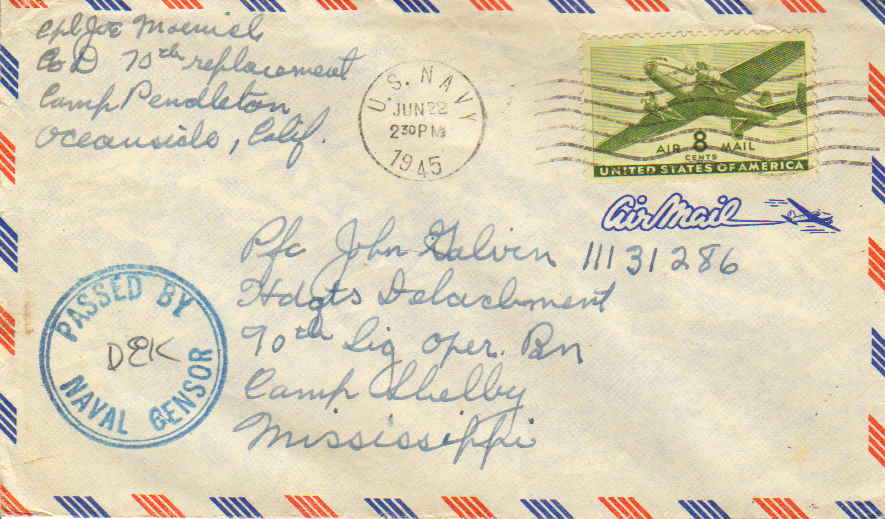 Cpl Joe
Co D 70th replacement
Camp Pendleton
Oceanside, Calif.
U.S. NAVY
JUN 22
2 30 PM
1945
AIR 8 MAIL
CENTS
UNITED STATES OF AMERICA
Air Mail
Pfc John Galvin 11131286
Hdqts Detachment
70th Sig Oper. Bn
Camp Shelby
Mississippi
PASSED BY
DEK
NAVAL CENSOR